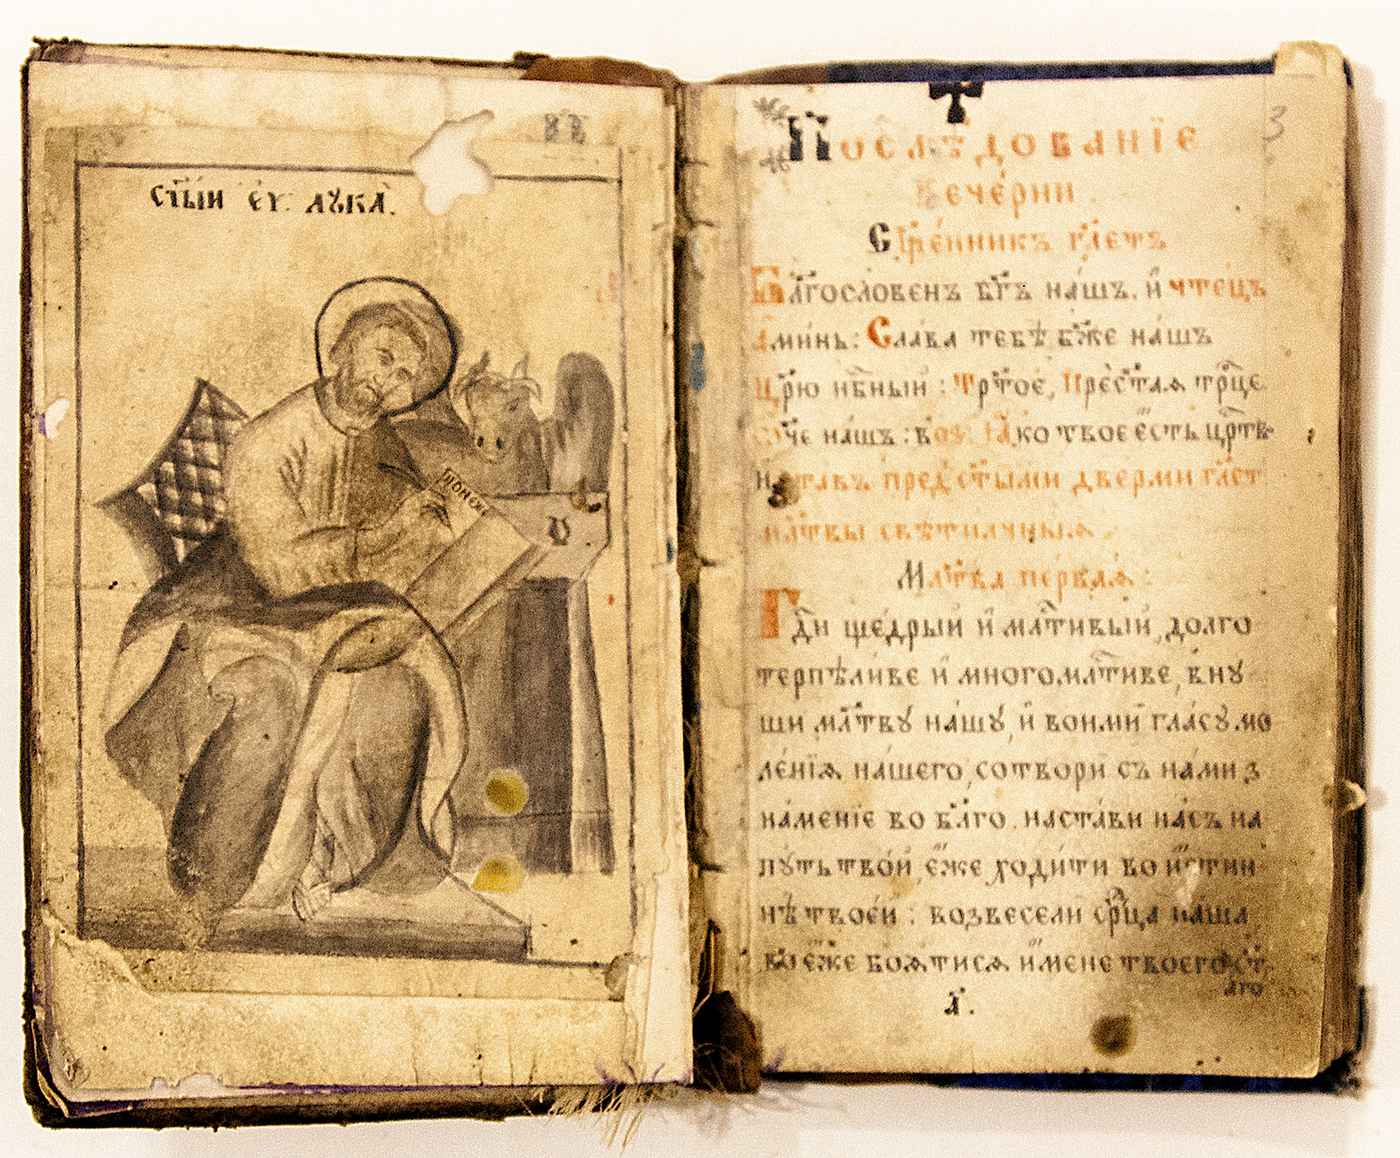 ст҃ы́й є҆ѵ: лꙋка̀.
понеже
3
Послѣдованїе
вечерни
Сщ҃е́нникъ гл҃етъ
Бл҃гослове́нъ бг҃ъ на́шъ. и҆ чтецъ
а҆ми́нь: Сла́ва тебѣ̀ бж҃е на́шъ
цр҃ю нб҃ный: Трⷭ҇тое, Прес҃таѧ трⷪ҇це
ѻч҃е на́шъ: Ꙗ҆́ко твое є҆́сть црⷭ҇тв
предъ ст҃ыми две́рми гл҃ет
мл҃твы свѣти́лничныѧ.
Мл҃тва пе́рваѧ:
Гдⷭ҇и ще́дрый и҆ млⷭ҇тивый, долго
терпѣли́ве и҆ многомлⷭ҇тиве, внꙋ
ши мл҃твꙋ на́шꙋ, и҆ вонмѝ гла́сꙋ мо
ле́нїѧ на́шего, сотворѝ съ на́ми з
на́менїе во бл҃го. наста́ви на́съ на
пꙋ́ть тво́й, є҆́же ходи́ти во и҆́стин
нѣ твое́й: возвеселѝ срⷣца на́ша
во є҆́же боѧ́тисѧ и҆́мене твоего̀ ст҃
аго
а҃.